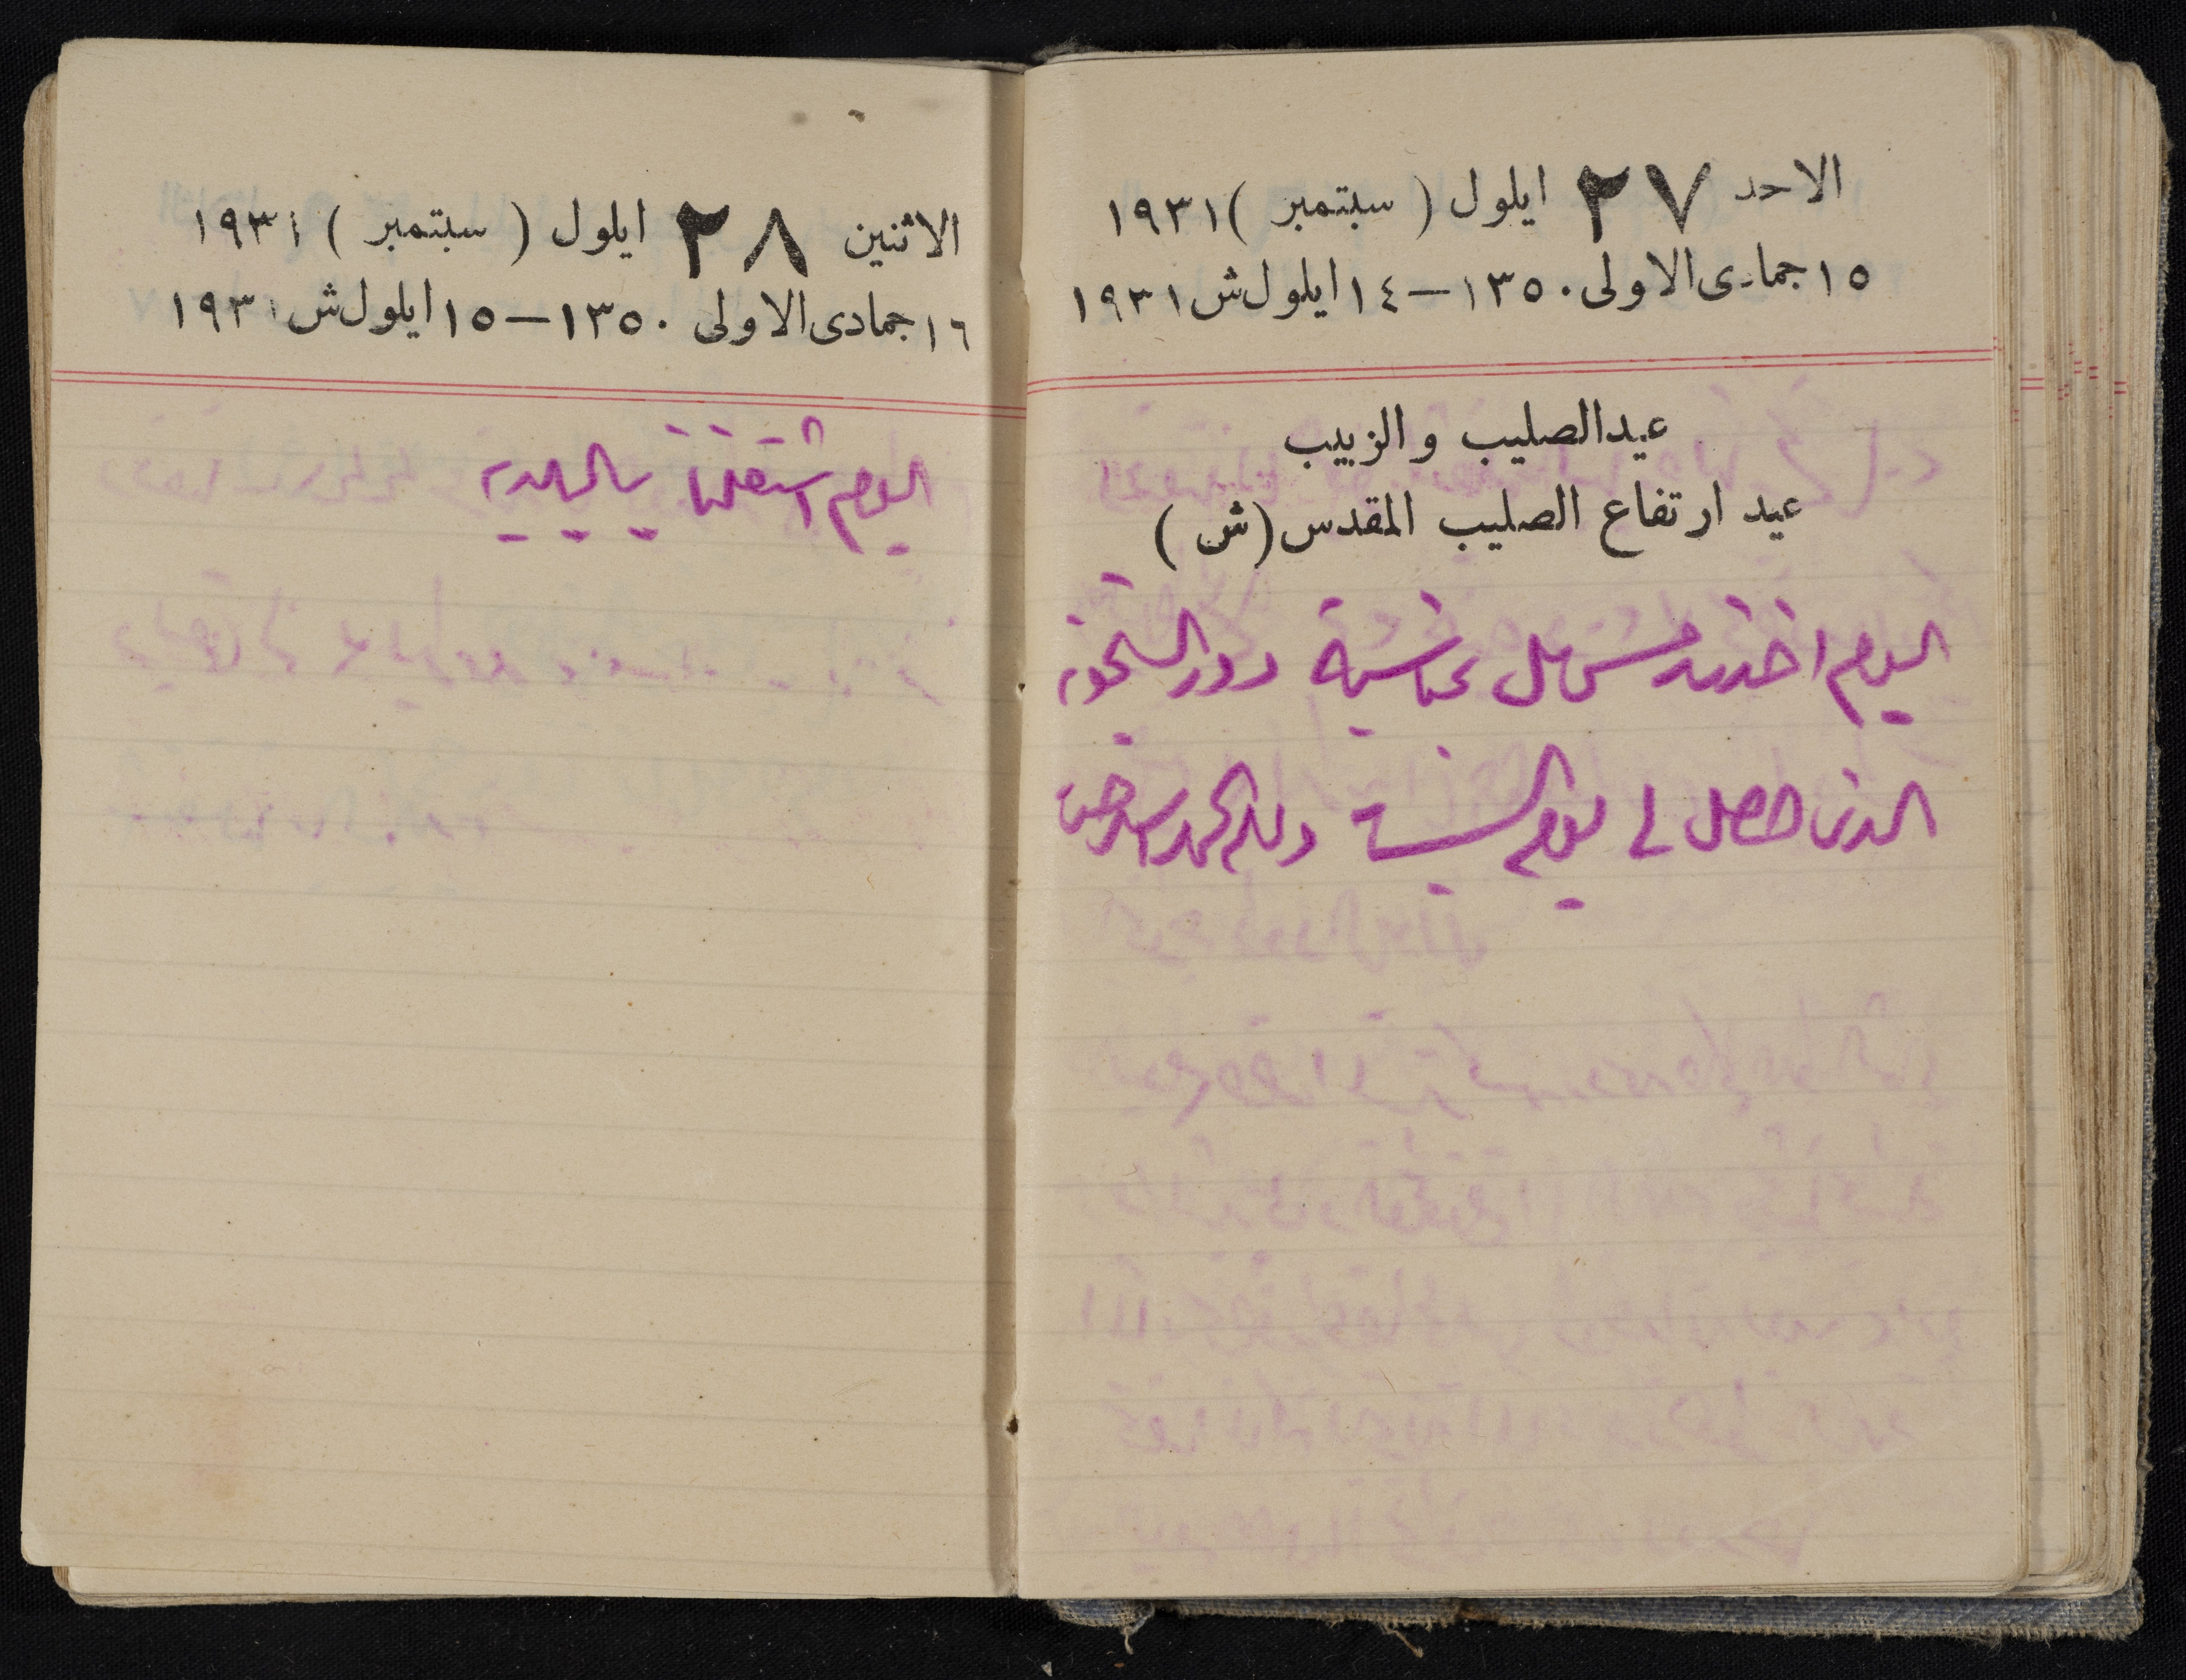 الاحد ٢٧ ايلول ( سبتمبر ) ١٩٣١
١٥ جمادى الاولى ١٣٥٠ – ١٤ ايلول ش ١٩٣١
عيد الصليب والزبيب
عيد ارتفاع الصليب المقدس (ش )
اليوم اخذت مسهل بمناسبة دور السخونه
الذي حصل لي يوم السبت ولله الحمد
الاثنين ٢٨ ايلول ( سبتمبر ) ١٩٣١
١٦ جمادى الاولى ١٣٥٠ – ١٥ ايلول ش ١٩٣١
اليوم اشتغلنا